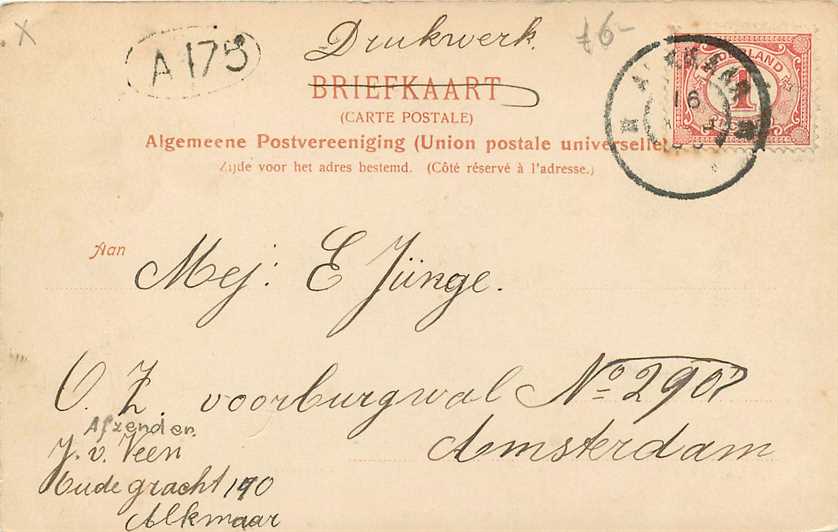 X
A 175
Drukwerk.
£6-
BRIEFKAART
(CARTE POSTALE)
Algemeene Postvereeniging (Union postale universelle)
Zijde voor het adres bestemd. (Côté réservé à l'adresse.)
ALKMAAR
16
NEDERLAND
1
CENT
Aan
Mej: E Jünge.
O. Z. voorburgwal No 290
Amsterdam
Afzender
J. v. Veen
Oude gracht 190
Alkmaar